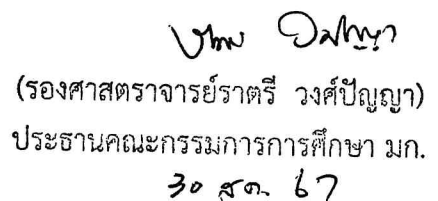 (รองศาสตราจารย์ราตรี วงศ์ปัญญา)
ประธานคณะกรรมการการศึกษา มก.
30 สค. 67